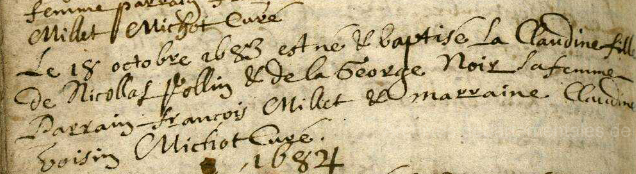 femme parrain
Millet Michot Curé
Le 18 octobre 1683 est né & baptisé La Claudine fille
De Nicollas Pollin & de la George Noir sa femme
Parrain francois Millet & marraine Claudine
voisin Michot Curé.
1684